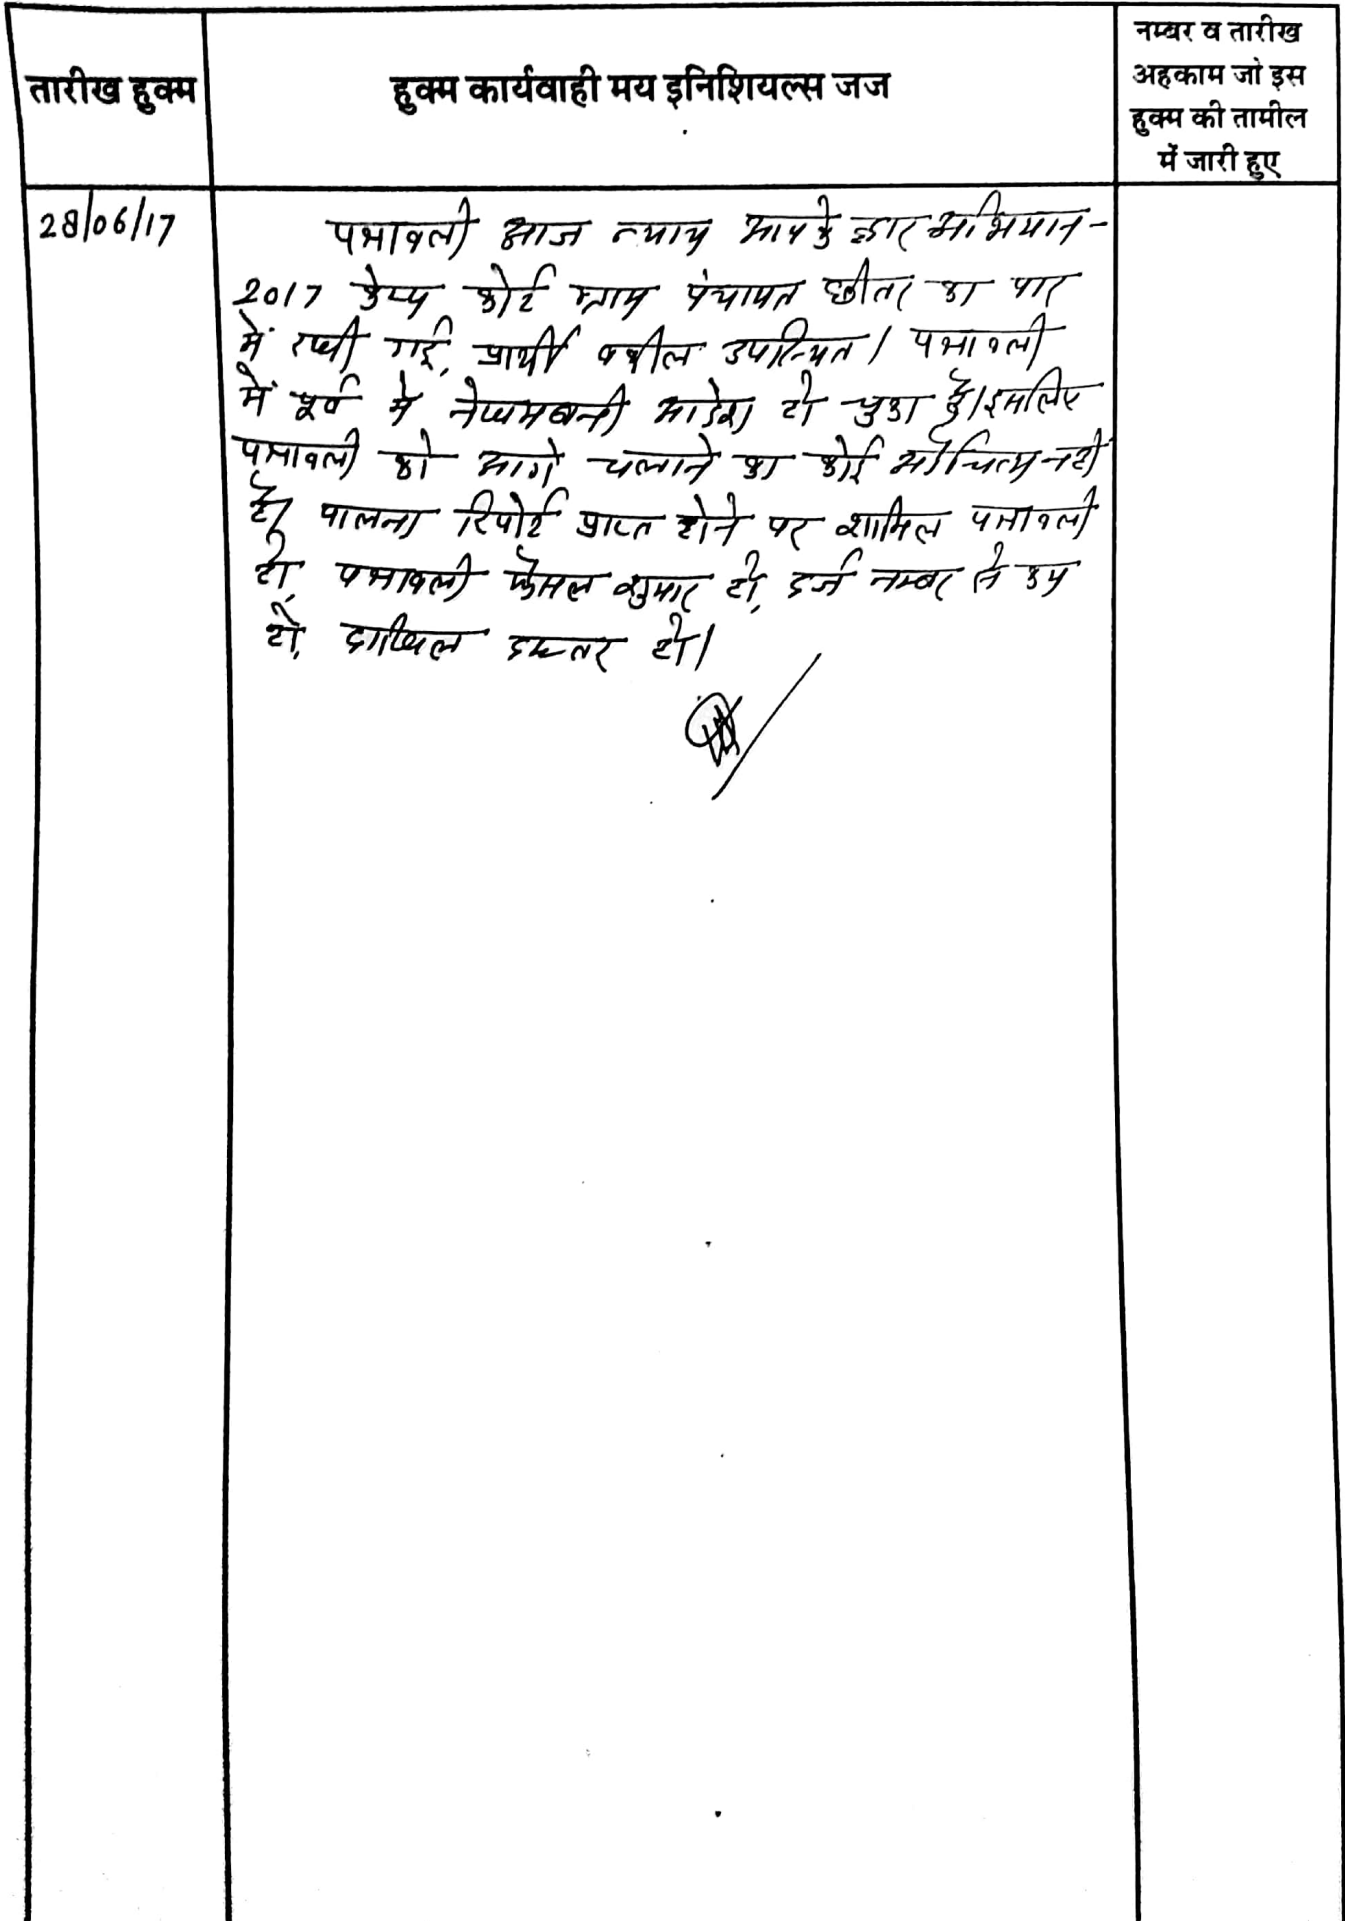 तारीख हुक्म
हुक्म कार्यवाही मय इनिशियल्स जज
नम्बर व तारीख
अहकाम जो इस
हुक्म की तामील
में जारी हुए
28/06/17
पत्रावली आज न्याय आपके द्वार अभियान-
2017 केम्प कोर्ट ग्राम पंचायत छीतर का पार
में रखी गई, प्रार्थी वकील उपस्थित। पत्रावली
में पूर्व में आदेश हो चुका है। इसलिए
पत्रावली को आगे चलाने का कोई औचित्य नहीं
है। पालना रिपोर्ट प्राप्त होने पर शामिल पत्रावली
हो, पत्रावली फैसल शुमार हो, दर्ज नम्बर से कम
हो, दाखिल दफ्तर हो।